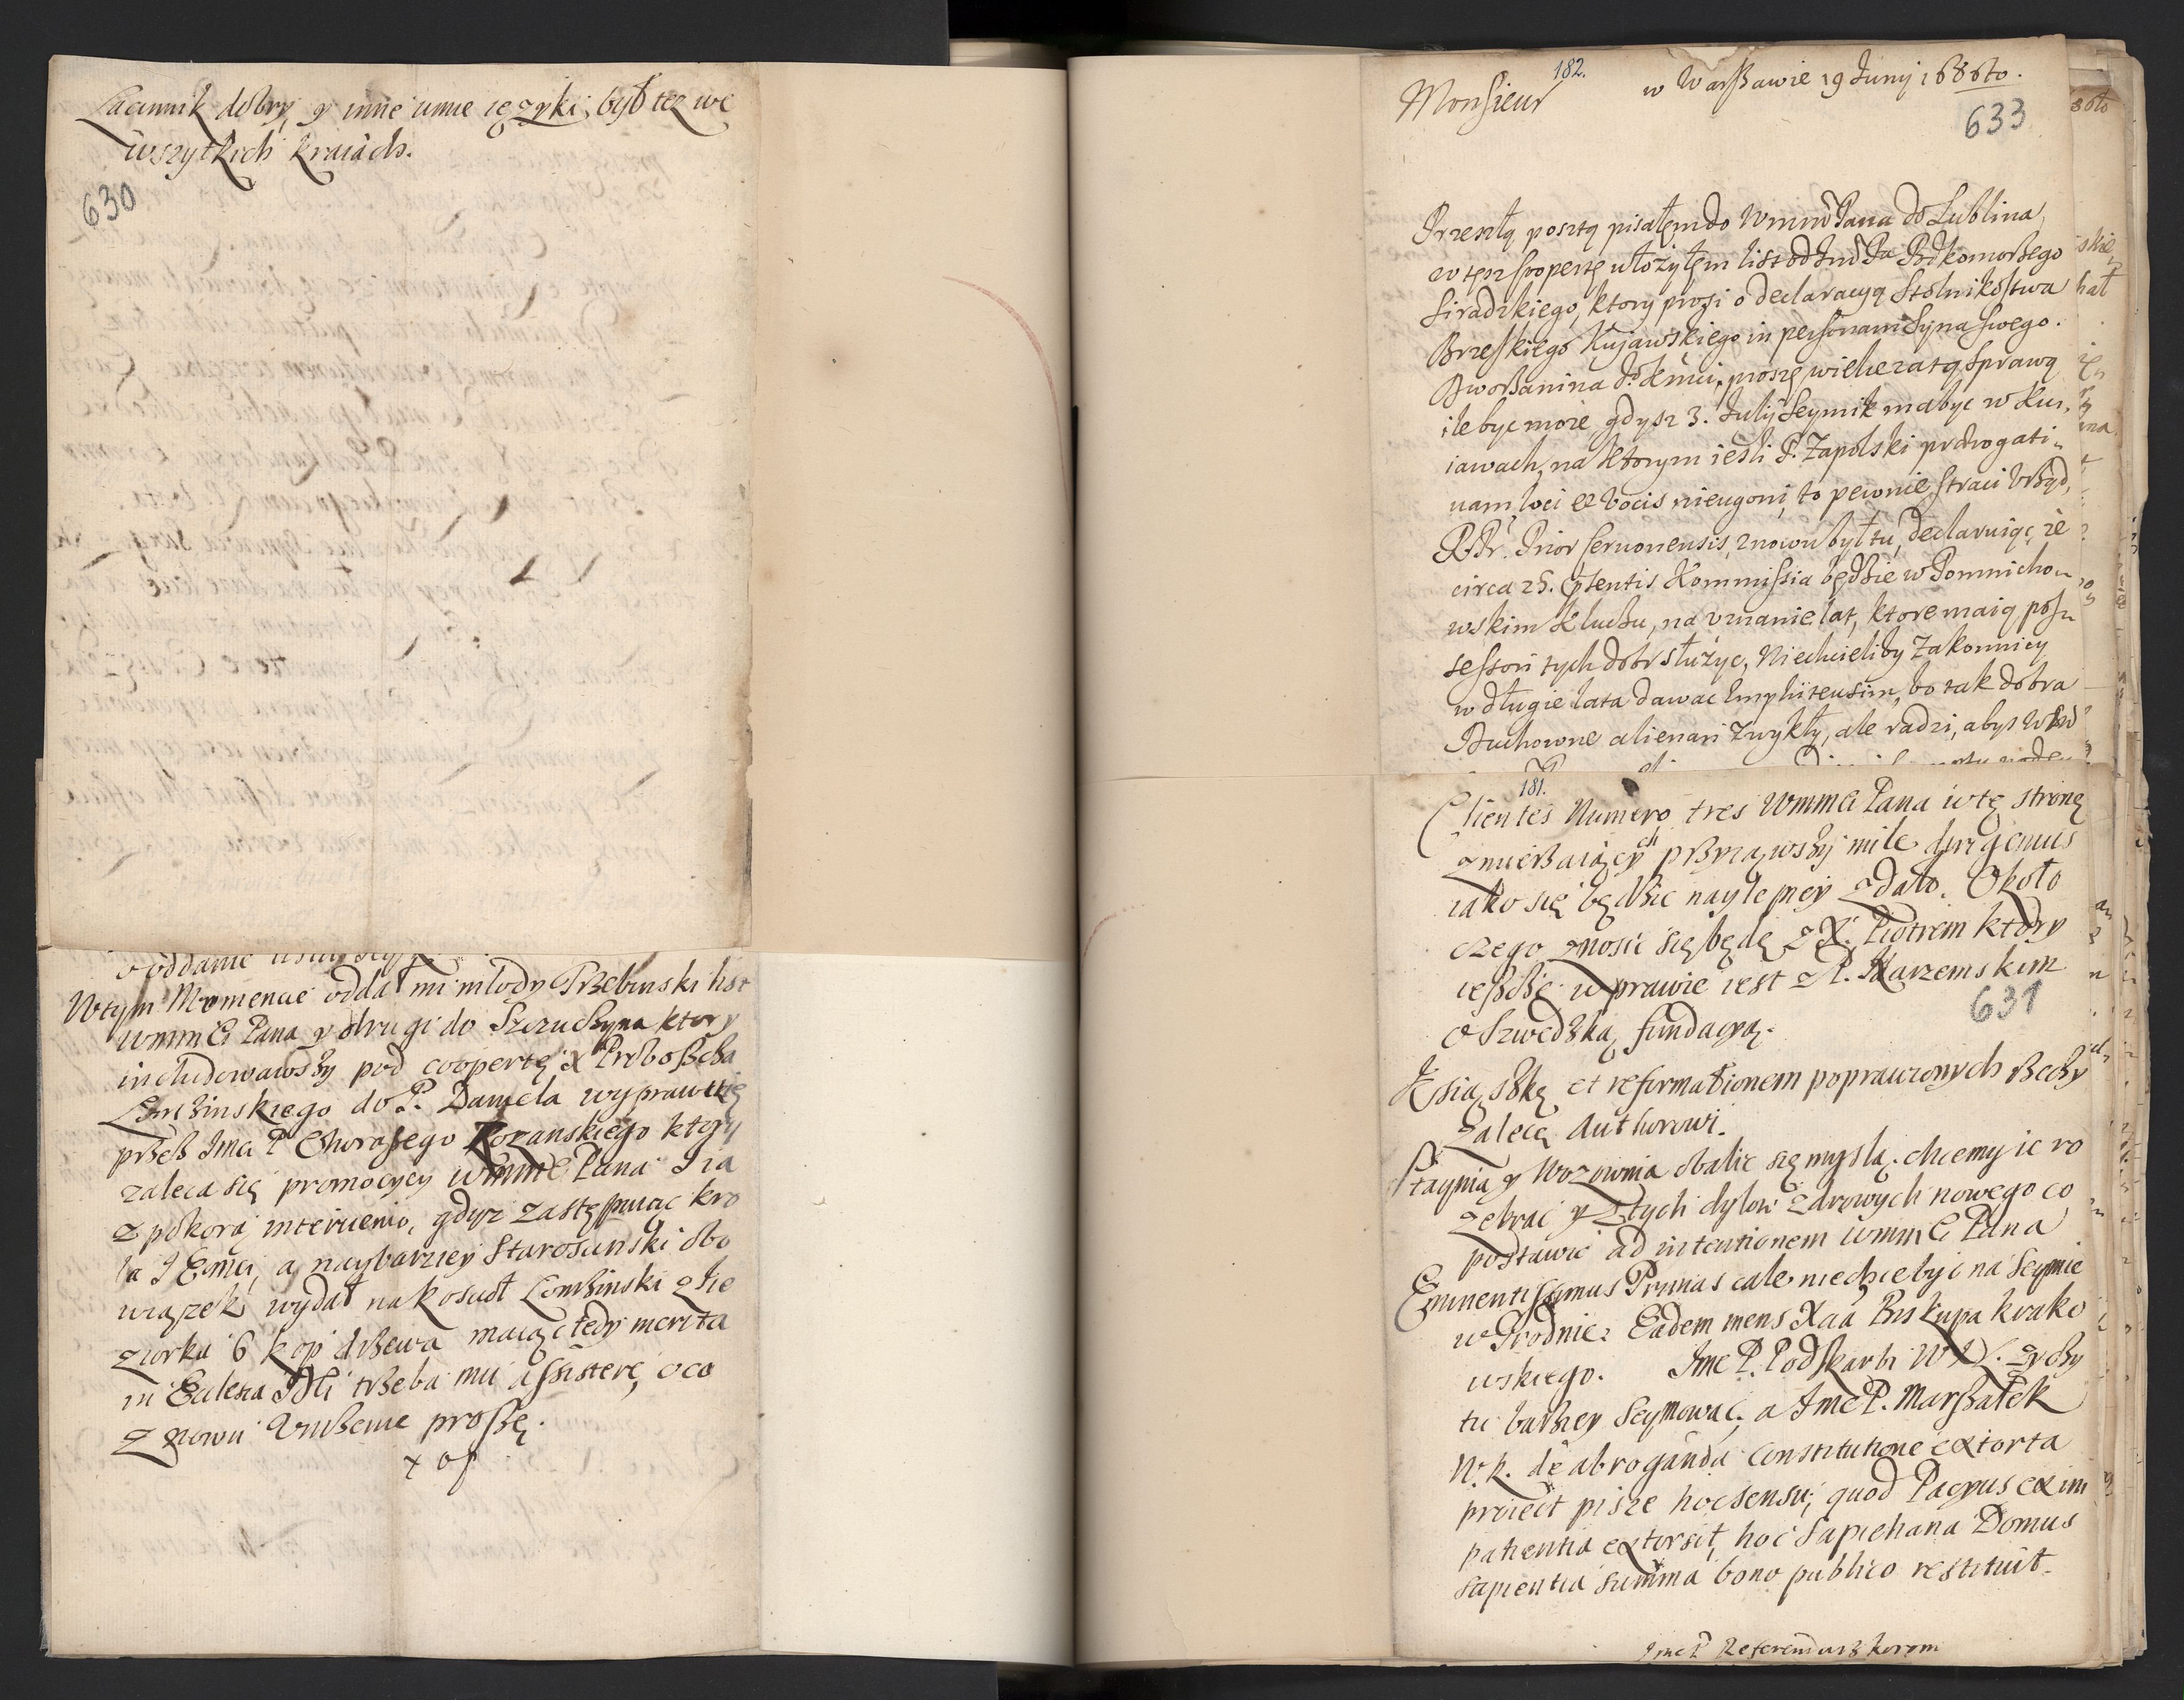 Łacinnik dobry, y inne umie ięzyki, był tez we
wszytkich kraiach.
630
W tym Momencie oddał mi młody Trzebinski list
WmmCi Pana y drugi do Szczuczyna ktory
includowawszy pod coopertę X Proboszcza
Łomzinskiego do P. Daniela wyprawuię
przesz Jmci P Chorąsego Rozanskiego ktory
zaleca się promocyey WmmCi Pana I ia
z pokorą intervenio, gdyz zastępuiąc kro
la JEmci, a naybarziey Starosinski obo
wiązek wydał na kosciół Łomzinski z Zie
ziorka 6 kop drzewa maiąc tedy merita
in Eclesia Dei trzeba mu assistere, o co
znowu Vnizenie proszę.
182.
Monsieur
w Warszawie 19 Junij 1686to.
633
Przeszłą posztą pisałem do Wmm Pana do Lublina,
w tęsz kopertę ułożyłem list od Pa Podkomorzego
Siradzkiego, ktory prosi o declaracyą Stolnikostwa
Brzeskiego Kujawskiego in personam Syna swego.
Dworzanina proszę wielce za tą sprawą
ile byc moze, gdysz 3. Julij Seymik ma byc w Kui,
iawach, na ktorym iesli P. Zapolski prærogati,,
uam loci et vocis nieugoni, to pewnie straci Vrząd,
Prior znowu był tu, declaruiąc, ze
circa 25. præsentis Kommissia będzie w Pomnicho,,
wskim Kluczu, na vznanie lat, ktore maią pos,,
sessori tych dobr słuzyc, Niechcieliby Zakonnicy
w długie lata dawac Emphiteusim, bo tak dobra
Duchowne alienari zwykły, ale radzi, abys
181.
Clientes Numero tres WmmCi Pana w tę stronę
zmierzaiących przyiąwszy mile dirigemus
iako się będzie naylepiey zdało. Około
czego znosic się będę z X. Piotrem ktory
ieszcze w prawie iest z P. Karzemskim
o Szwedzką fundacyą.
631
Xsiąszkę et reformationem poprawionych Rzeczy
zalecę Authorowi.
Staynia y Wozownia obalic się myslą. chcemy ie ro
zebrac y z tych dylow zdrowych nowego co
postawic ad intentionem WmmCi Pana
Eminentissimus Primas cale niechce byc na Seymie
w Grodnie: Eadem mens Xcia Biskupa krako
wskiego. Jmc P. Podskarbi W X L. zyczy
tu barziey Seymowac, a Jmc P. Marszałek
W. L. de abroganda Constitutione extorta
proiect pisze hoc sensu, quod Pacyus ex im
patientia extorsit, hoc Sapiehana Domus
sapientia summa bono publico restituit.
Jmc P Referendarz koron